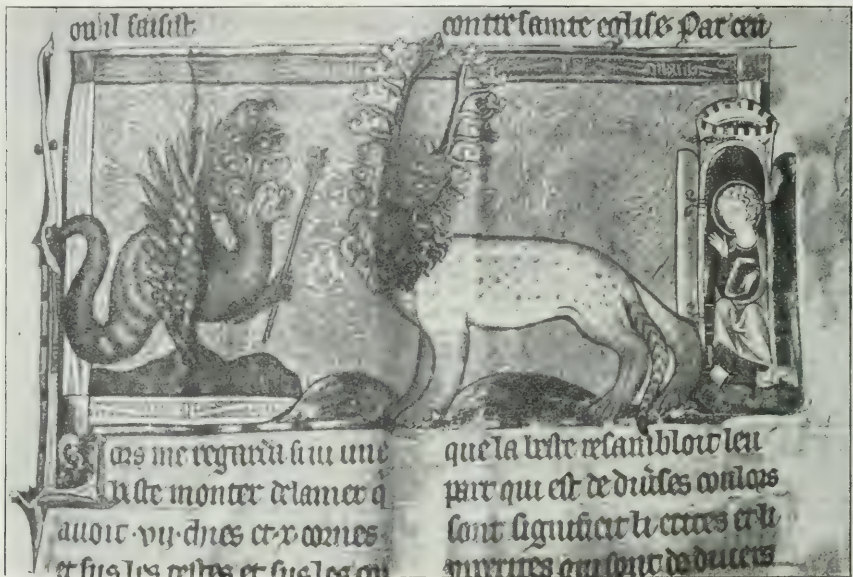 ou il saisist.
[L]ors me regardai si ui une
beste monter de la mer q
auoit .vij. chies et .x. cornes
et sus les testes et sus les cor
contre sainte eglise. Par ceu
que la beste resambloit leu
part qui est de diuerses coulors
sont signifieit li et li
qui sont de diuers